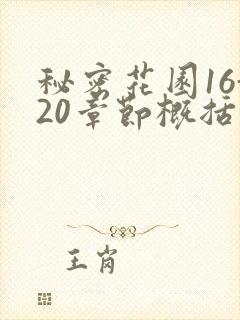 秘密花园16-
20章节概括
王肖